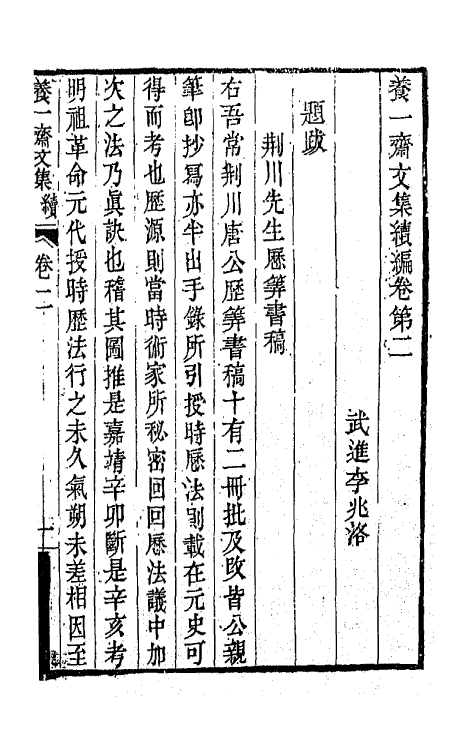 養一齋文集續編卷第二
武進李兆洛
題跋
荆川先生厯筭書稿
右吾常荆川唐公歷筭書稿十有二冊批及改皆公親
筆卽抄寫亦半出手錄所引授時厯法則載在元史可
得而考也歷源則當時術家所秘密回回厯法議中加
次之法乃眞訣也稽其圖推是嘉靖辛卯斷是辛亥考
明祖革命元代授時歷法行之未久氣朔未差相因至
養一齋文集 續 卷二 一